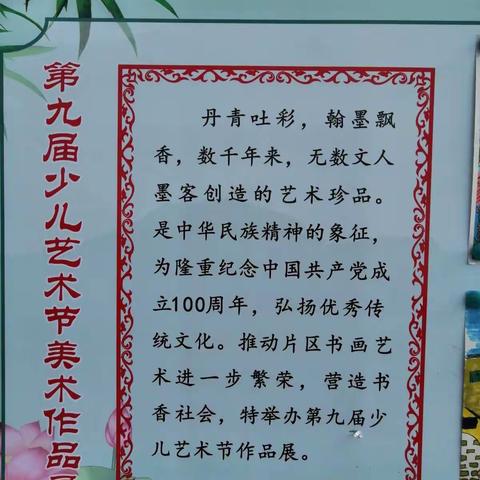 第九届少儿艺术节美术作品
丹青吐彩，翰墨飘
香，数千年来，无数文人
墨客创造的艺术珍品。
是中华民族精神的象征，
为隆重纪念中国共产党成
立100周年，弘扬优秀传
统文化。推动片区书画艺
术进一步繁荣，营造书
香社会，特举办第九届少
儿艺术节作品展。